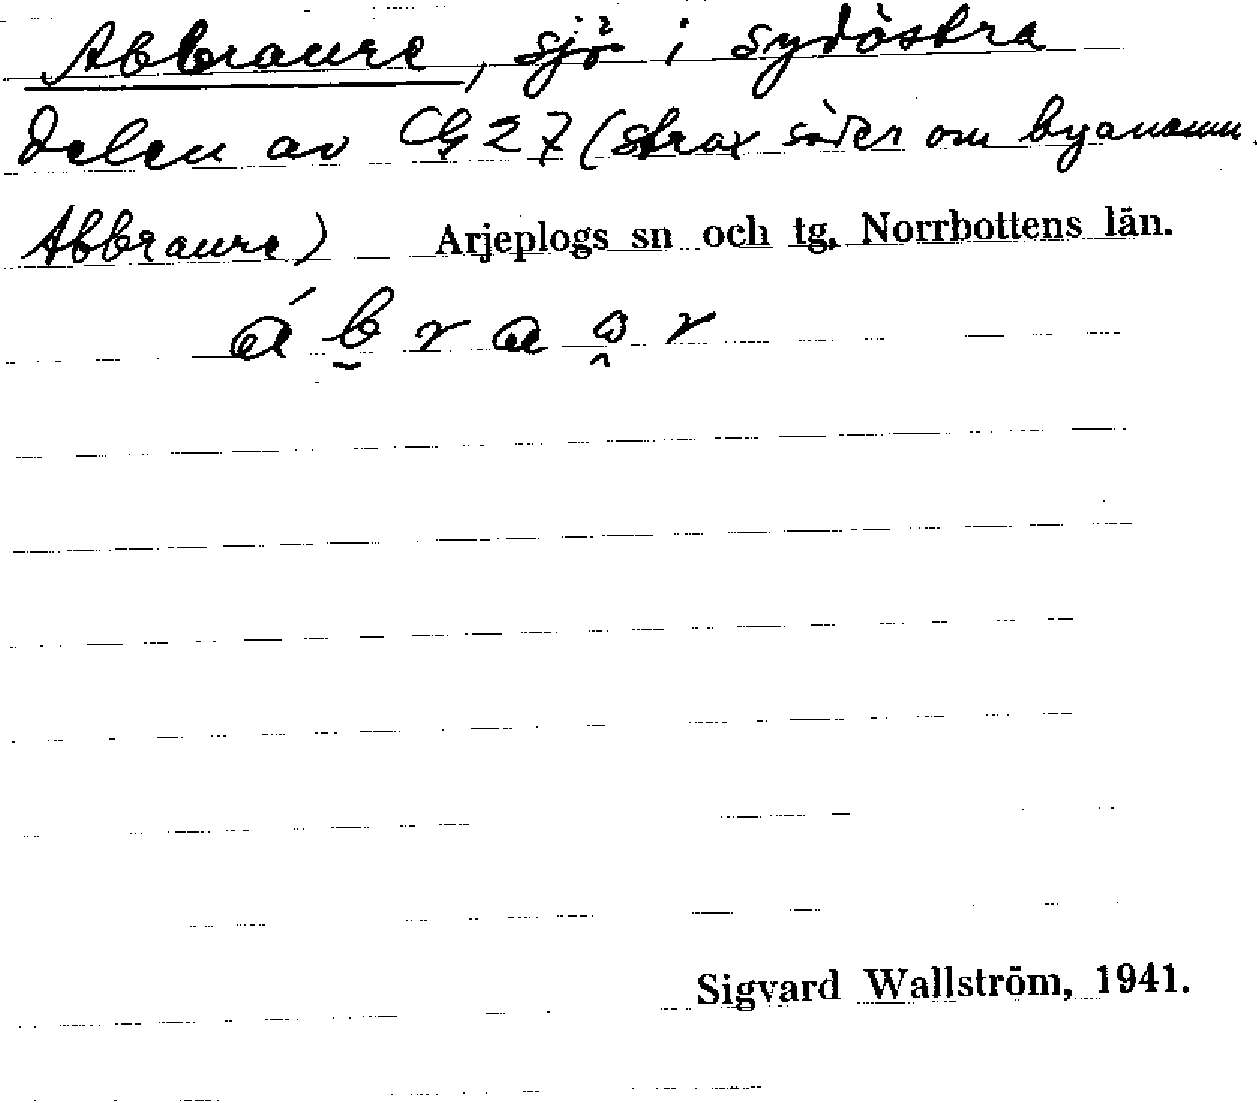 Abbraure, sjö i sydöstra
delen av CG27 (strax söder om byanamn
Abbraure) Arjeplogs sn och tg. Norrbottens län.
Sigvard Wallström, 1941.